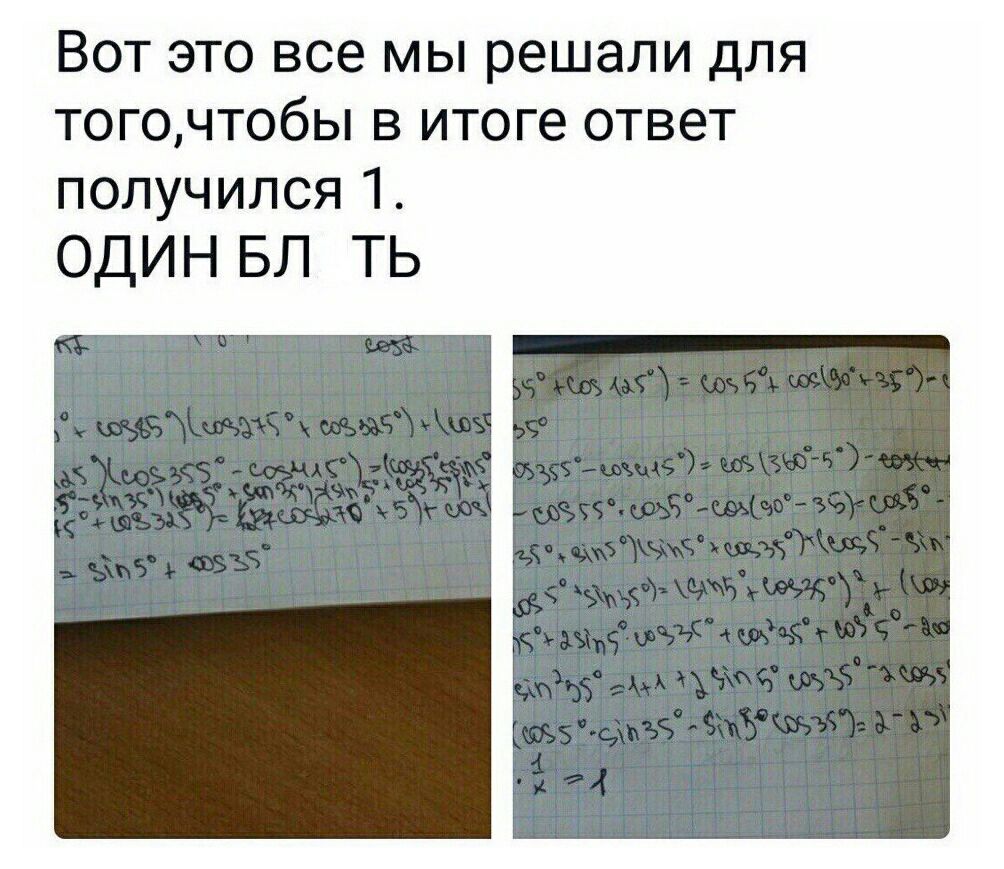 Вот это все мы решали для
того,чтобы в итоге ответ
получился 1.
ОДИН БЛ ТЬ
cosα
° + cos85°)(cos275° + cos325°)+(cos5
125°)(cos355° - cos415°)=(cos5°+sin5°
5° - sin35°)(cos5° + sin35°)=(sin5° + cos35°)² +
75° + cos325°)= cos270° + 5°)+ cos(
= sin5° + cos35°
55° + cos125°) = cos5° + cos(90° + 35°) - c
35°
os355° - cos415°) = cos(360° - 5°) -
- cos55° = cos5° - cos(90° - 35) = cos5° -
35° + sin5°)(sin5° + cos35°)+(cos5° - sin
cos5° + sin35°)= (sin5° + cos35°)² + (cos
5° + 2sin5° · cos35° + cos²35° + cos²5° - 2co
sin²35° = 1+1 + 2sin5° cos35° - 2cos5°
(cos5° · sin35° - sin5° cos35°)= 2 - 2si
· 1/x = 1